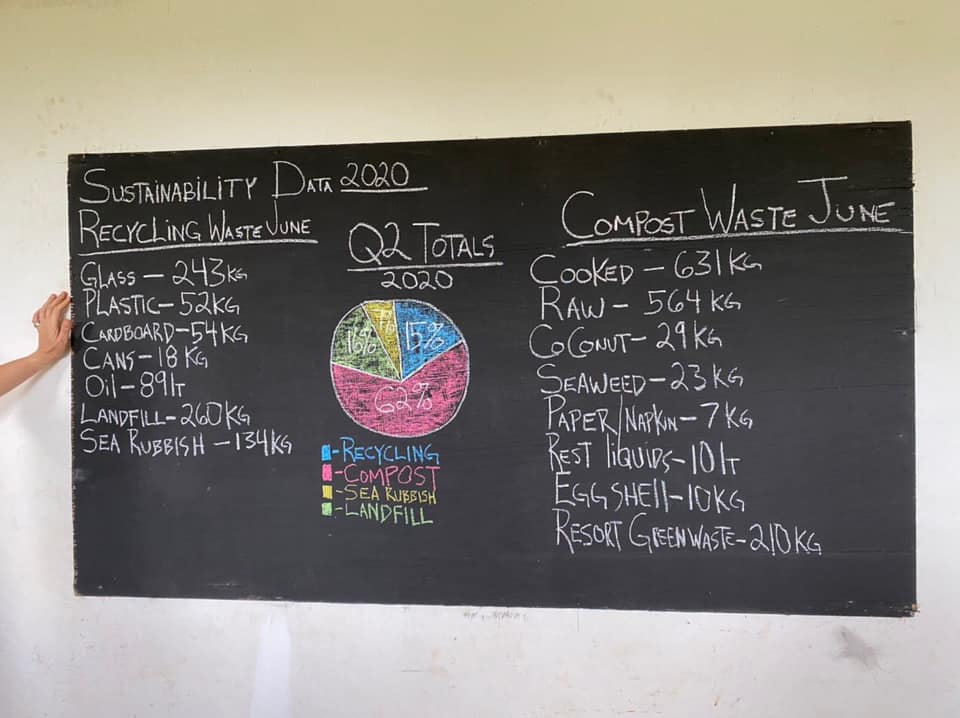 SUSTAINABILITY DATA 2020
RECYCLING WASTE JUNE
GLASS – 243KG
PLASTIC – 52KG
CARDBOARD – 54KG
CANS – 18KG
Oil – 89lT
LANDFILL – 260KG
SEA RUBBISH – 134KG
Q2 TOTALS
2020
7%
15%
16%
62%
- RECYCLING
- COMPOST
- SEA RUBBISH
- LANDFILL
COMPOST WASTE JUNE
COOKED – 631KG
RAW – 564KG
COCONUT – 29KG
SEAWEED – 23KG
PAPER/NAPKIN – 7KG
REST liQUIDS – 10lT
EGGSHEll – 10KG
RESORT GREEN WASTE – 210KG